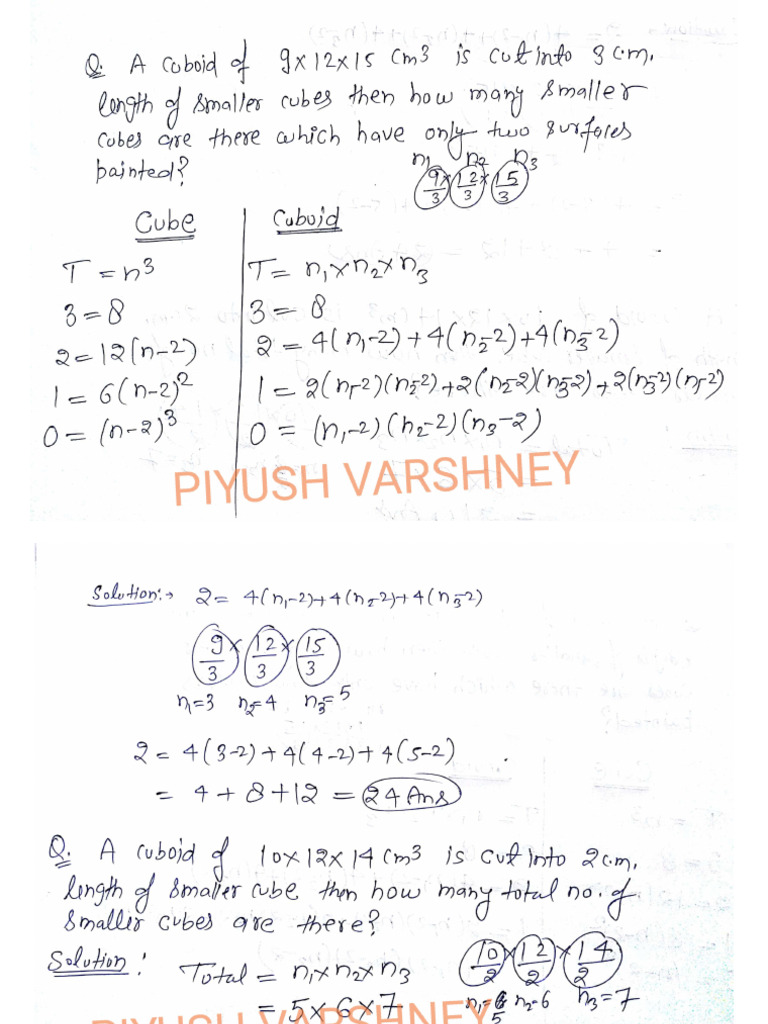 Q. A cuboid of 9x12x15 cm3 is cut into 3 c.m.
length of smaller cubes then how many smaller
cubes are there which have only two surfaces
painted?
n1 n2 n3
9/3 × 12/3 × 15/3
Cube
T = n^3
3 = 8
2 = 12(n-2)
1 = 6(n-2)^2
0 = (n-2)^3
Cuboid
T = n1×n2×n3
3 = 8
2 = 4(n1-2)+4(n2-2)+4(n3-2)
1 = 2(n1-2)(n2-2)+2(n2-2)(n3-2)+2(n3-2)(n1-2)
0 = (n1-2)(n2-2)(n3-2)
PIYUSH VARSHNEY
Solution:→ 2 = 4(n1-2)+4(n2-2)+4(n3-2)
9/3 × 12/3 × 15/3
n1=3 n2=4 n3=5
2 = 4(3-2)+4(4-2)+4(5-2)
= 4+8+12 = 24 Ans
Q. A cuboid of 10x12x14 cm3 is cut into 2 c.m.
length of smaller cube then how many total no. of
smaller cubes are there?
Solution: Total = n1×n2×n3
10/2 × 12/2 × 14/2
= 5×6×7
n1= 5 n2=6 n3=7
PIYUSH VARSHNEY